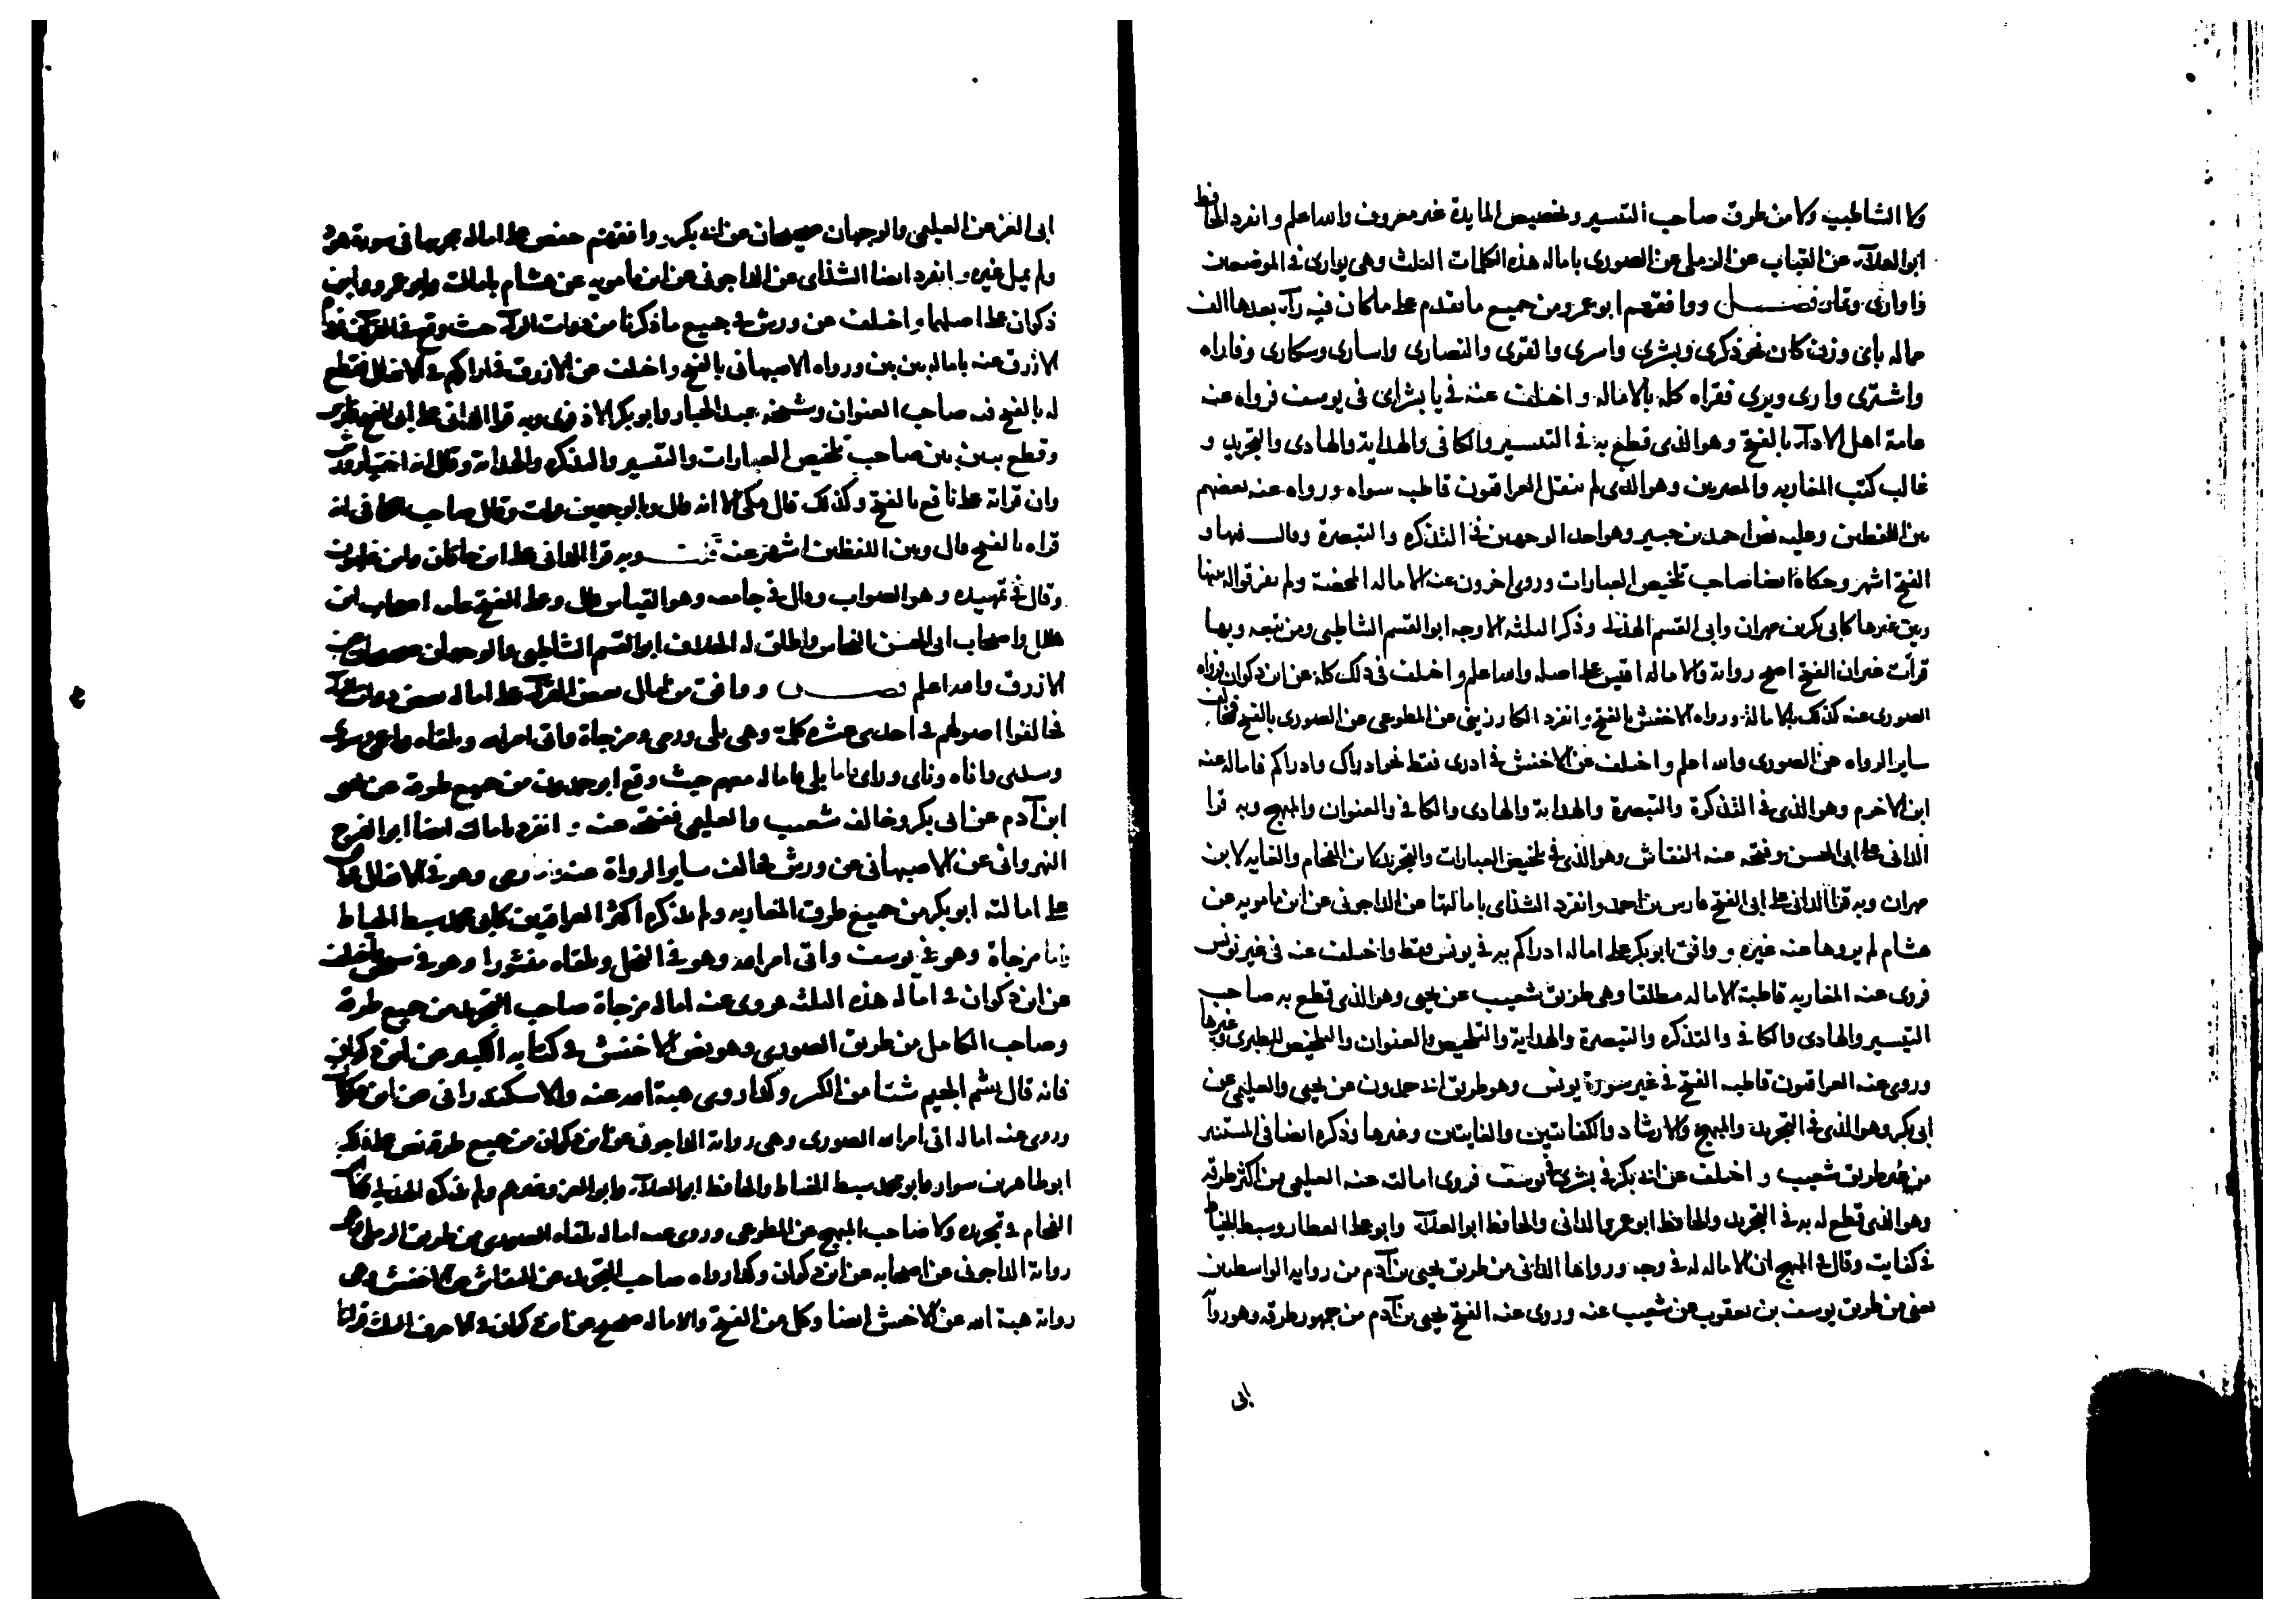 ولا الشاطبية ولا من طرق صاحب التيسير وتخصيص المايدة غير معروف والله اعلم وانفرد الحافظ
ابو العلآء عن القباب عن الرملي عن الصوري بامالة هذه الكلمات الثلث وهي يواري في الموضعين
فاواري وتمار فصل ووافقهم ابو عمرو من جميع ما تقدم على ما كان فيه رآء بعدها الف
ممالة باي وزن كان نحو ذكرى وبشرى واسرى والقرى والنصارى واسارى وسكارى وفاراه
واشترى وارى ويرى فقراه كله بالامالة واختلف عنه في يا بشراي في يوسف فرواه عنه
عامة اهل الادآء بالفتح وهو الذي قطع به في التيسير والكافي والهداية والهادي والتجريد و
غالب كتب المغاربة والمصريين وهو الذي لم ينقل العراقيون قاطبة سواه ورواه عنه بعضهم
بين اللفظين وعليه نص احمد بن جبير وهو احد الوجهين في التذكرة والتبصرة وقال فيها و
الفتح اشهر وحكاه ايضا صاحب تلخيص العبارات وروى اخرون عنه الامالة المحضة ولم يفرقوا له بينها
وبين غيرها كابي بكر بن مهران وابي القسم الهذلي وذكر الثلثة الاوجه ابو القسم الشاطبي ومن تبعه وبها
قرات غير ان الفتح اصح رواية والامالة اقيس على اصله والله اعلم واختلف في ذلك كله عن ابن ذكوان فرواه
الصوري عنه كذلك بالامالة ورواه الاخفش بالفتح وانفرد الكارزيني عن المطوعي عن الصوري بالفتح فخالف
ساير الرواه عن الصوري والله اعلم واختلف عن الاخفش في ادرى فقط نحو ادراك وادراكم فاماله عنه
ابن الاخرم وهو الذي في التذكرة والتبصرة والهداية والهادي والكافي والعنوان والمبهج وبه قرا
الداني على ابي الحسن وفتحه عنه النقاش وهو الذي في تلخيص العبارات والتجريد لابن الفحام والغاية لابن
مهران وبه قرا الداني على ابي الفتح فارس بن احمد وانفرد الشذاي بامالتها عن الداجوني عن ابن مامويه عن
هشام لم يروها عنه غيره ووافق ابو بكر على امالة ادراكم به في يونس فقط واختلف عنه في غير يونس
فروى عنه المغاربة قاطبة الامالة مطلقا وهي طريق شعيب عن يحيى وهو الذي قطع به صاحب
التيسير والهادي والكافي والتذكره والتبصرة والهداية والتلخيص والعنوان والتلخيص للطبري وغيرها
وروى عنه العراقيون قاطبة الفتح في غير سورة يونس وهو طريق ابي حمدون عن يحيى والعليمي عن
ابي بكر وهو الذي في التجريد والمبهج والارشاد والكفايتين والغايتين وغيرها وذكره ايضا في المستنير
من غير طريق شعيب واختلف عن ابي بكر في بشراي في يوسف فروى امالته عنه العليمي من اكثر طرقه
وهو الذي قطع له به في التجريد والحافظ ابو عمرو الداني والحافظ ابو العلآء وابو علي العطار وسبط الخياط
في كفايته وقال في المبهج ان الامالة له في وجه ورواها الداني من طريق يحيى بن آدم من رواية الواسطيين
يعني من طريق يوسف بن يعقوب عن شعيب عنه وروى عنه الفتح يحيى بن آدم من جمهور طرقه وهو روآء
ابي
ابي العز عن العليمي والوجهان صحيحان عن ابي بكر ووافقهم حفص على امالة مجريها في سورة هود
ولم يمل غيره وانفرد ايضا الشذاي عن الداجوني عن ابن مامويه عن هشام بامالته وابو عمرو وابن
ذكوان على اصلهما واختلف عن ورش في جميع ما ذكرنا من ذوات الرآء حيث وقع في القرآن فرواه
الازرق عنه بامالة بين بين ورواه الاصبهاني بالفتح واختلف عن الازرق في اراكهم في الانفال فقطع
له بالفتح فيه صاحب العنوان وشيخه عبد الجبار وابو بكر الاذفوي وبه قرا الداني على ابي الفتح فارس
وقطع ببين بين صاحب تلخيص العبارات والتيسير والتذكره والهداية وقال انه اختيار ورش
وان قراته على نافع بالفتح وكذلك قال مكي الا انه قال وبالوجهين قرات وقال صاحب الكافي انه
قراه بالفتح قال وبين اللفظين اشهر عنه قلت وبه قرا الداني على ابن خاقان وابن غلبون
وقال في تمهيده وهو الصواب وقال في جامعه وهو القياس قال وعلى الفتح عامة اصحاب ابن
هلال واصحاب ابي الحسن النحاس واطلق له الخلاف ابو القسم الشاطبي والوجهان صحيحان عن
الازرق والله اعلم فصل ووافق من امال بعض القرآء على امالة بعض ذوات اليآء
فخالفوا اصولهم في احدى عشرة كلمة وهي بلى ورمى ومزجاة واتى امر الله ويلقاه واعمى وسوى
وسدى واناه وناى وراى فاما بلى فاماله معهم حيث وقع ابو حمدون من جميع طرقه عن يحيى
ابن آدم عن ابي بكر وخالفه شعيب والعليمي ففتحه عنه وانفرد بامالته ايضا ابو الفرج
النهرواني عن الاصبهاني عن ورش فخالف ساير الرواة عنه واما رمى وهو في الانفال فوافق
على امالته ابو بكر من جميع طرق المغاربة ولم يذكره اكثر العراقيين كابي محمد سبط الخياط
واما مزجاة وهو في يوسف واتى امر الله وهو في النحل ويلقاه منشورا وهو في سبحن فاختلف
عن ابن ذكوان في امالة هذه الثلثة فروى عنه امالة مزجاة صاحب التجريد من جميع طرقه
وصاحب الكامل من طريق الصوري وهو نص الاخفش في كتابه الكبير عن ابن ذكوان
فانه قال يشم الجيم شيئا من الكسر وكذا روى هبة الله عنه والاسكندراني عن ابن ذكوان
وروى عنه امالة اتى امر الله الصوري وهي رواية الداجوني عن ابن ذكوان من جميع طرقه نص على ذلك
ابو طاهر بن سوار وابو محمد سبط الخياط والحافظ ابو العلآء وابو العز وغيرهم ولم يذكره الهذلي ولا ابن
الفحام في تجريده ولا صاحب المبهج عن المطوعي وروى عنه امالة يلقاه الصوري من طريق الرملي وهي
رواية الداجوني عن اصحابه عن ابن ذكوان وكذا رواه صاحب التجريد عن النقاش عن الاخفش وهي
رواية هبة الله عن الاخفش ايضا وكل من الفتح والامالة صحيح عن ابن ذكوان في الاحرف الثلثة قرانا